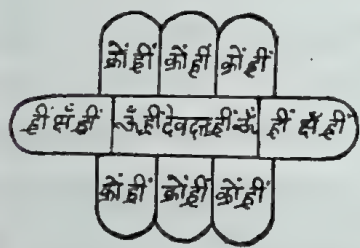 क्रों ह्रीं क्रों ह्रीं क्रों ह्रीं
ह्रीं क्षँ ह्रीं ॐ ह्रीं देवदत्त ह्रीं ॐ ह्रीं क्षँ ह्रीं
क्रों ह्रीं क्रों ह्रीं क्रों ह्रीं